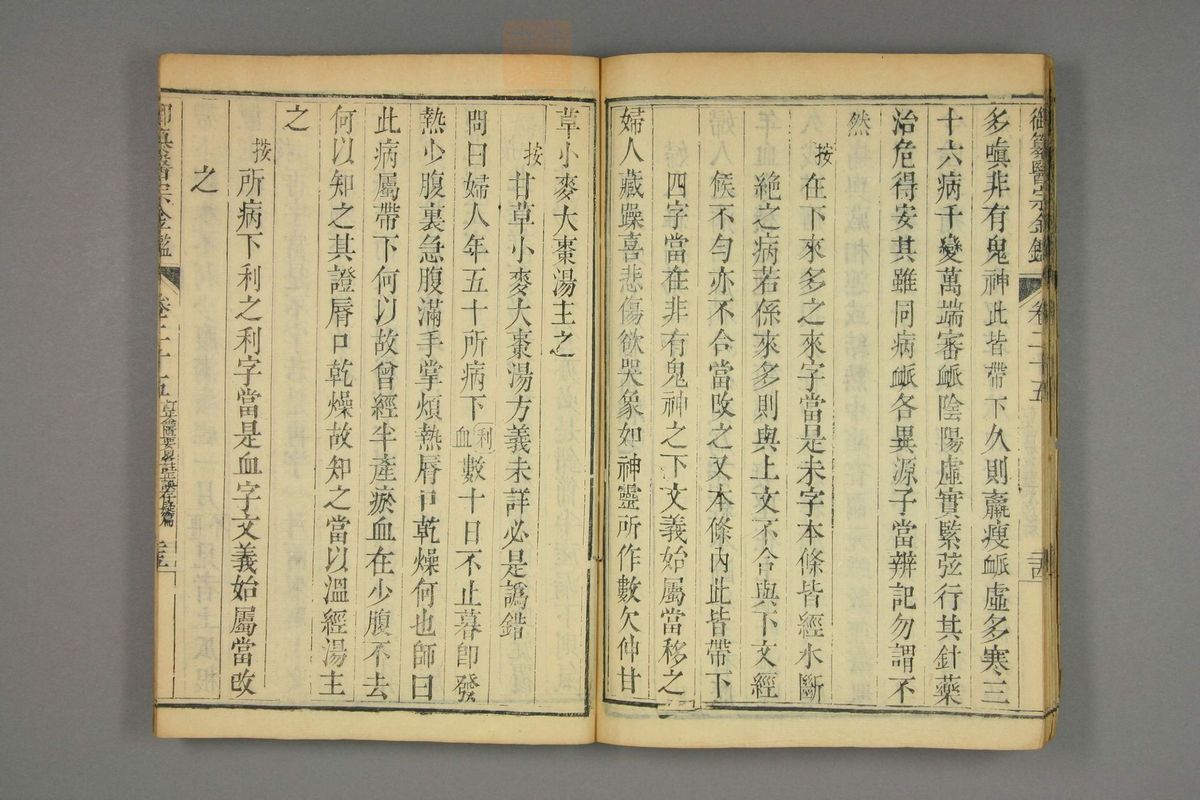 御纂醫宗金鑑 卷二十五 三四
多嗔非有鬼神此皆帶下久則羸瘦䘑虛多寒三
十六病千變萬端審䘑陰陽虛實緊弦行其針藥
治危得安其雖同病䘑各異源子當辨記勿謂不
然
按在下來多之來字當是未字本條皆經水斷
絶之病若係來多則與上文不合與下文經
候不勻亦不合當改之又本條內此皆帶下
四字當在非有鬼神之下文義始屬當移之
婦人藏躁喜悲傷欲哭象如神靈所作數欠伸甘
草小麥大棗湯主之
按甘草小麥大棗湯方義未詳必是譌錯
問曰婦人年五十所病下利血數十日不止暮即發
熱少腹裏急腹滿手掌煩熱脣口乾燥何也師曰
此病屬帶下何以故曾經半產瘀血在少腹不去
何以知之其證脣口乾燥故知之當以溫經湯主
之
按所病下利之利字當是血字文義始屬當改
之
御纂醫宗金鑑 卷二十五 三五